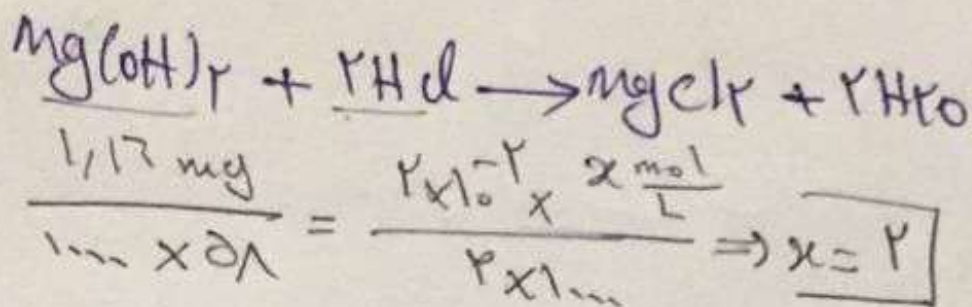 Mg(OH)۲ + ۲HCl → MgCl۲ + ۲H۲O
۱,۱۶ mg / ۱۰۰۰ × ۵۸ = ۲×۱۰^-۲ × x mol/L / ۲×۱۰۰۰ ⇒ x = ۲